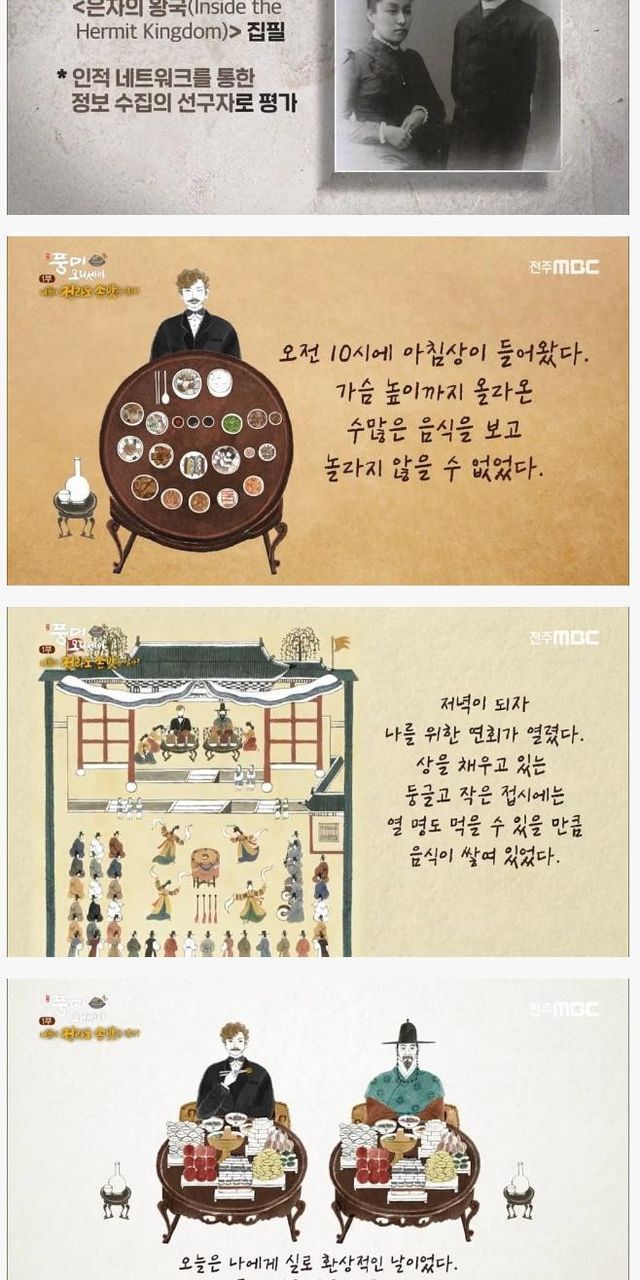 <은자의 왕국(Inside the
Hermit Kingdom)> 집필
* 인적 네트워크를 통한
정보 수집의 선구자로 평가
풍미
오디세이
1부
전라도 손맛
전주MBC
오전 10시에 아침상이 들어왔다.
가슴 높이까지 올라온
수많은 음식을 보고
놀라지 않을 수 없었다.
풍미
오디세이
1부
전라도 손맛
전주MBC
저녁이 되자
나를 위한 연회가 열렸다.
상을 채우고 있는
둥글고 작은 접시에는
열 명도 먹을 수 있을 만큼
음식이 쌓여 있었다.
풍미
오디세이
1부
전라도 손맛
전주MBC
오늘은 나에게 실로 환상적인 날이었다.